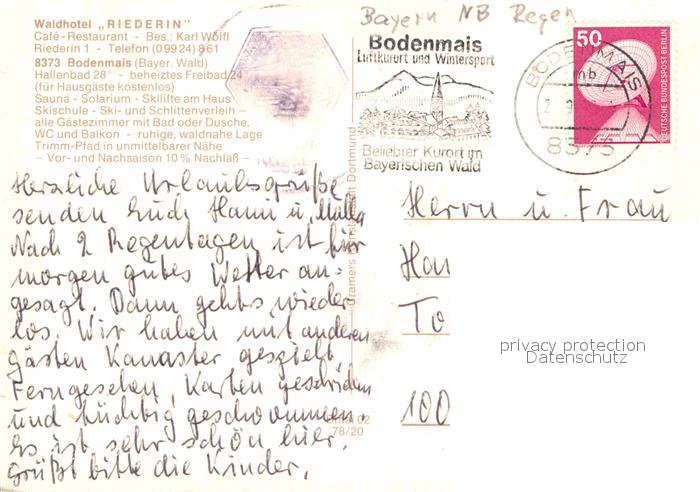 Bayern NB Regen
Waldhotel „RIEDERIN"
Café-Restaurant - Bes.: Karl Wölfl
Riederin 1 - Telefon (09924) 861
8373 Bodenmais (Bayer. Wald)
Hallenbad 28° - beheiztes Freibad 24
(für Hausgäste kostenlos)
Sauna - Solarium - Skilifte am Haus
Skischule - Ski- und Schlittenverleih –
alle Gästezimmer mit Bad oder Dusche,
WC und Balkon - ruhige, waldnahe Lage
Trimm-Pfad in unmittelbarer Nähe
– Vor- und Nachsaison 10% Nachlaß –
Bodenmais
Luftkurort und Wintersport
Beliebter Kurort im
Bayerischen Wald
BODENMAIS
mb
8373
50
DEUTSCHE BUNDESPOST BERLIN
Herzliche Urlaubsgrüße
senden Euch Hanni u.
Nach 2 Regentagen ist für
morgen gutes Wetter an-
gesagt. Dann gehts wieder
los. Wir haben mit anderen
Gästen Kanaster gespielt,
Ferngesehen, Karten geschrieben
und tüchtig geschwommen.
Es ist sehr schön hier.
Grüßt bitte die Kinder,
Cramers Dortmund
02
78/20
Herrn u. Frau
Han
To
100
privacy protection
Datenschutz